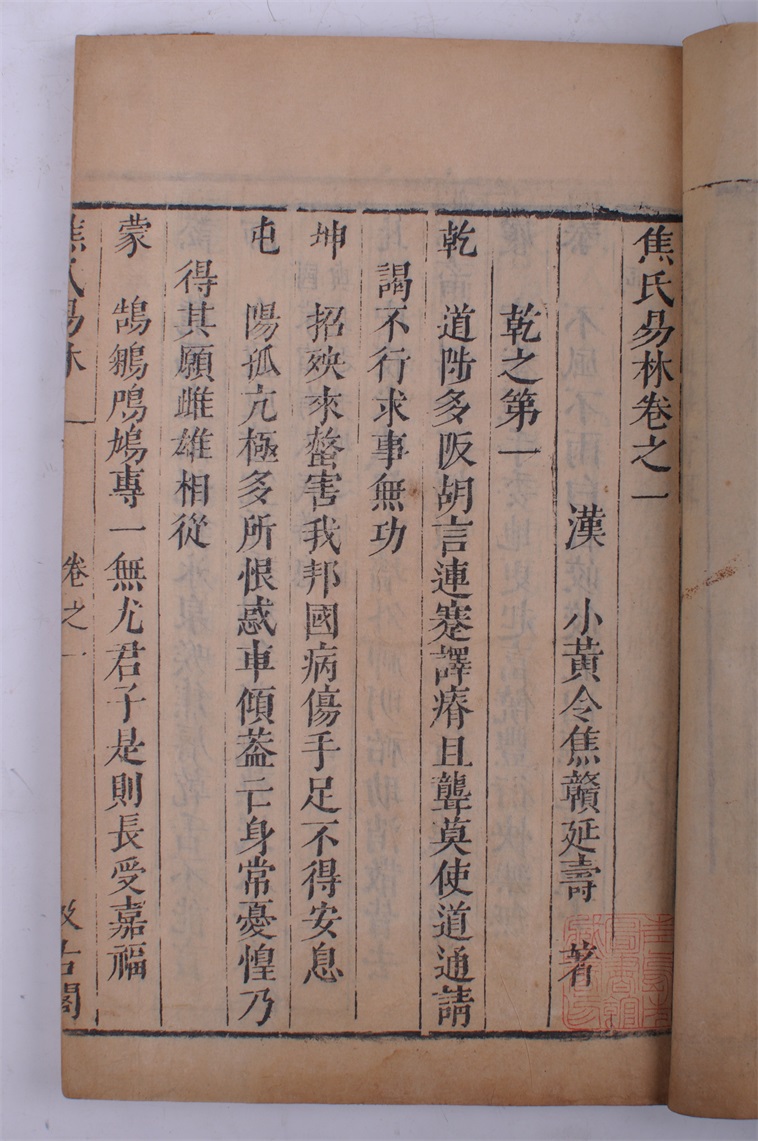 焦氏易林卷之一
漢 小黃令焦贛延壽 著
乾之第一
乾 道陟多阪胡言連蹇譯瘠且聾莫使道通請
謁不行求事無功
坤 招殃來螫害我邦國病傷手足不得安息
屯 陽孤亢極多所恨惑車傾葢亡身常憂惶乃
得其願雌雄相從
蒙 鵠鵴鳲鳩專一無尤君子是則長受嘉福
焦氏易林 卷之一 汲古閣